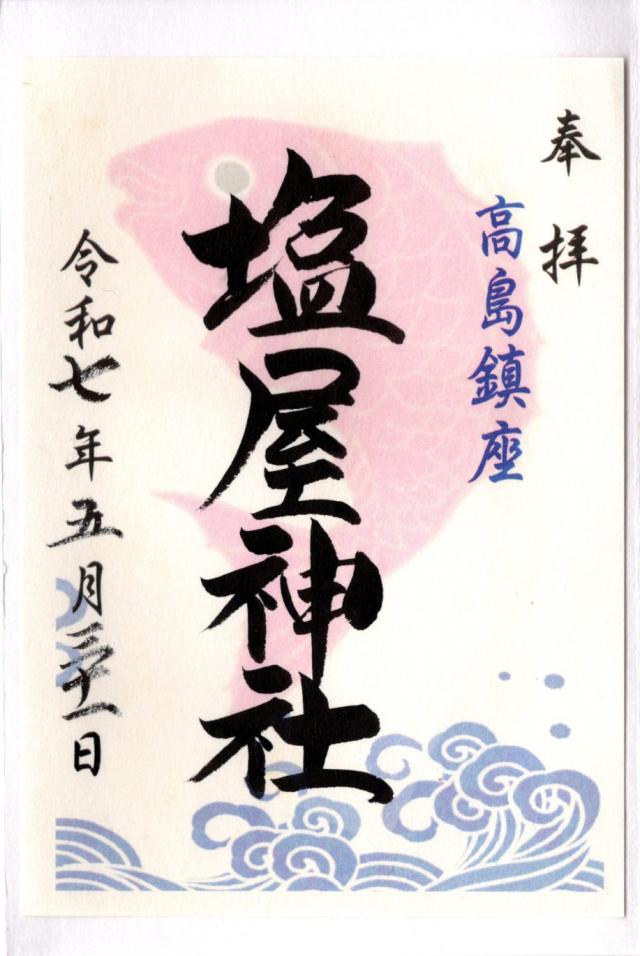 奉拝
高島鎮座
塩屋神社
令和七年五月三十一日